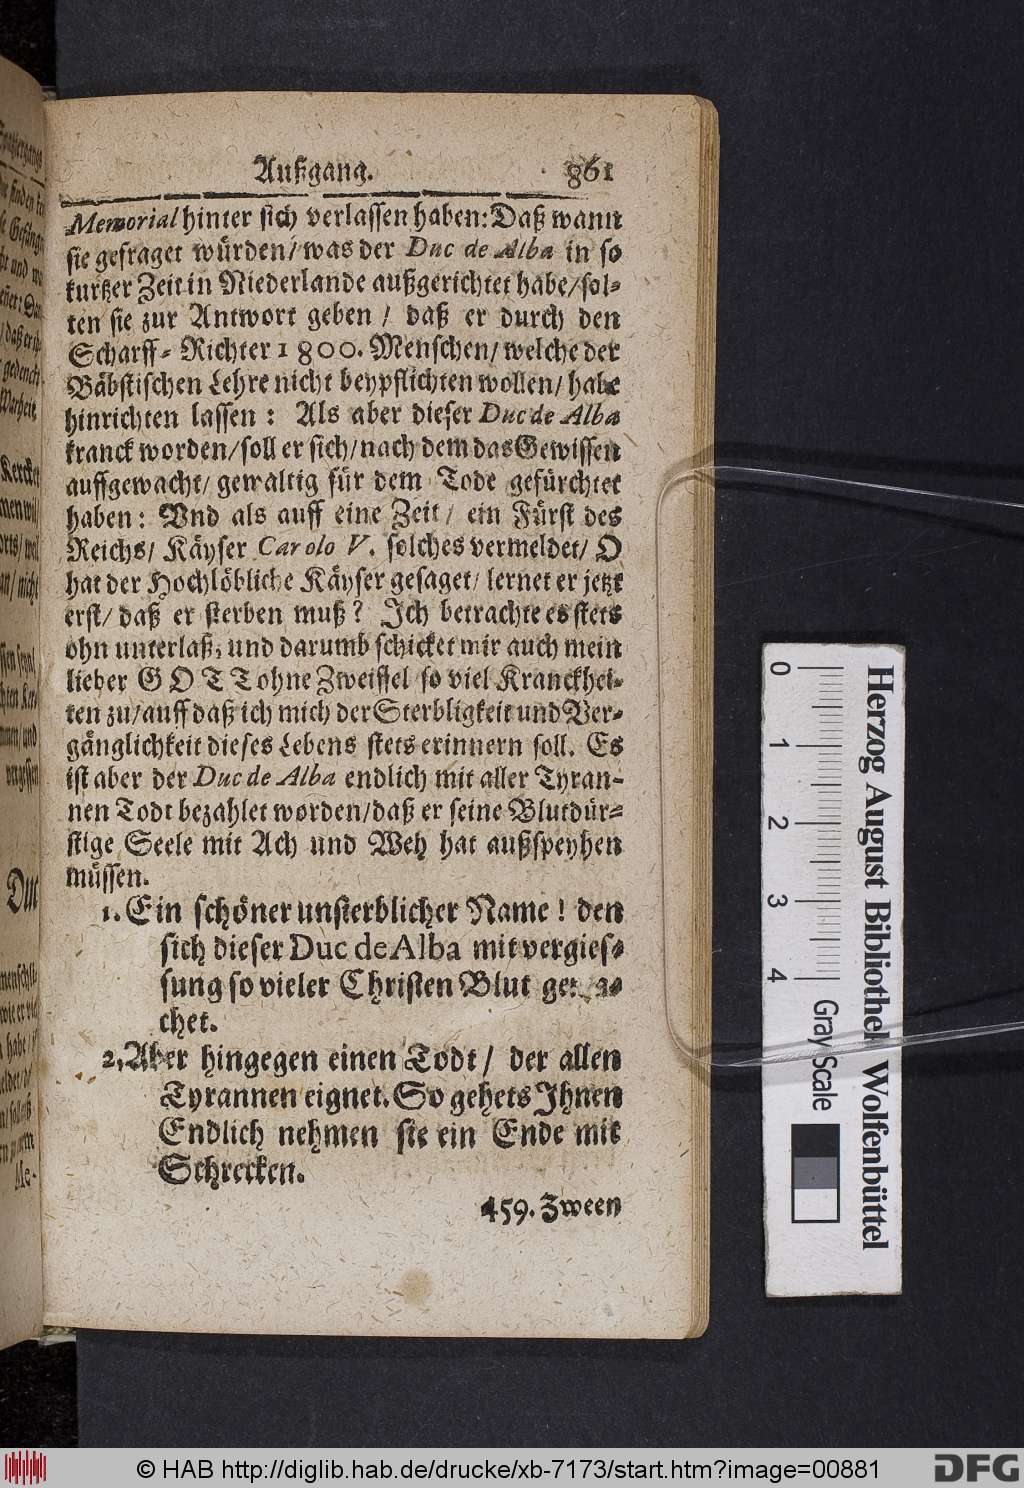 Außgang. 861
Memorial hinter sich verlassen haben: Daß wann
sie gefraget würden/ was der Duc de Alba in so
kurtzer Zeit in Niederlande außgerichtet habe/ sol-
ten sie zur Antwort geben / daß er durch den
Scharff- Richter 1800. Menschen/ welche der
Bäbstischen Lehre nicht beypflichten wollen/ habe
hinrichten lassen : Als aber dieser Duc de Alba
kranck worden/ soll er sich/ nach dem das Gewissen
auffgewacht/ gewaltig für dem Tode gefürchtet
haben: Vnd als auff eine Zeit/ ein Fürst des
Reichs/ Käyser Carolo V. solches vermeldet/ O
hat der Hochlöbliche Käyser gesaget/ lernet er jetzt
erst/ daß er sterben muß? Ich betrachte es stets
ohn unterlaß, und darumb schicket mir auch mein
lieber GOTT ohne Zweiffel so viel Kranckhei-
ten zu/ auff daß ich mich der Sterbligkeit und Ver-
gänglichkeit dieses Lebens stets erinnern soll. Es
ist aber der Duc de Alba endlich mit aller Tyran-
nen Todt bezahlet worden/ daß er seine Blutdür-
stige Seele mit Ach und Weh hat außspeyhen
müssen.
1. Ein schöner unsterblicher Name! den
sich dieser Duc de Alba mit vergies-
sung so vieler Christen Blut gema-
chet.
2. Aber hingegen einen Todt/ der allen
Tyrannen eignet. So gehets Ihnen
Endlich nehmen sie ein Ende mit
Schrecken.
459. Zween
0 1 2 3 4
Herzog August Bibliothek Wolfenbüttel
Gray Scale
© HAB http://diglib.hab.de/drucke/xb-7173/start.htm?image=00881
DFG